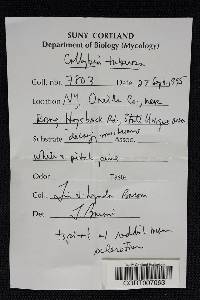 SUNY CORTLAND
Department of Biology (Mycology)
Collybia tuberosa
Coll. no. 7803 Date 27 Sept 1995
Location NY, Oneida Co., near
Rome Hogsback Rd. State Unique area
Substrate decaying mushrooms Assoc.
white & pitch pine
Odor Taste
Col. Tim & Lynda Baroni
Det. T Baroni
typical w/ reddish brown
sclerotium
CORT007063